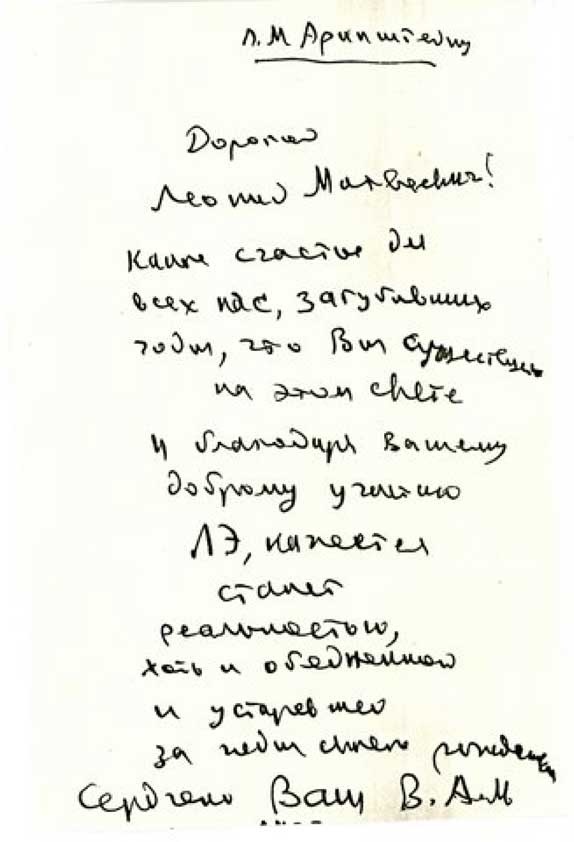 Л.М Аринштейну
Дорогой
Леонид Матвеевич!
Какое счастье для
всех нас, загубивших
годы, что Вы существуете
на этом свете
и благодаря Вашему
доброму участию
ЛЭ, кажется
станет
реальностью,
хоть и обедненной
и устаревшей
за годы своего рождения
Сердечно Ваш В. А-М